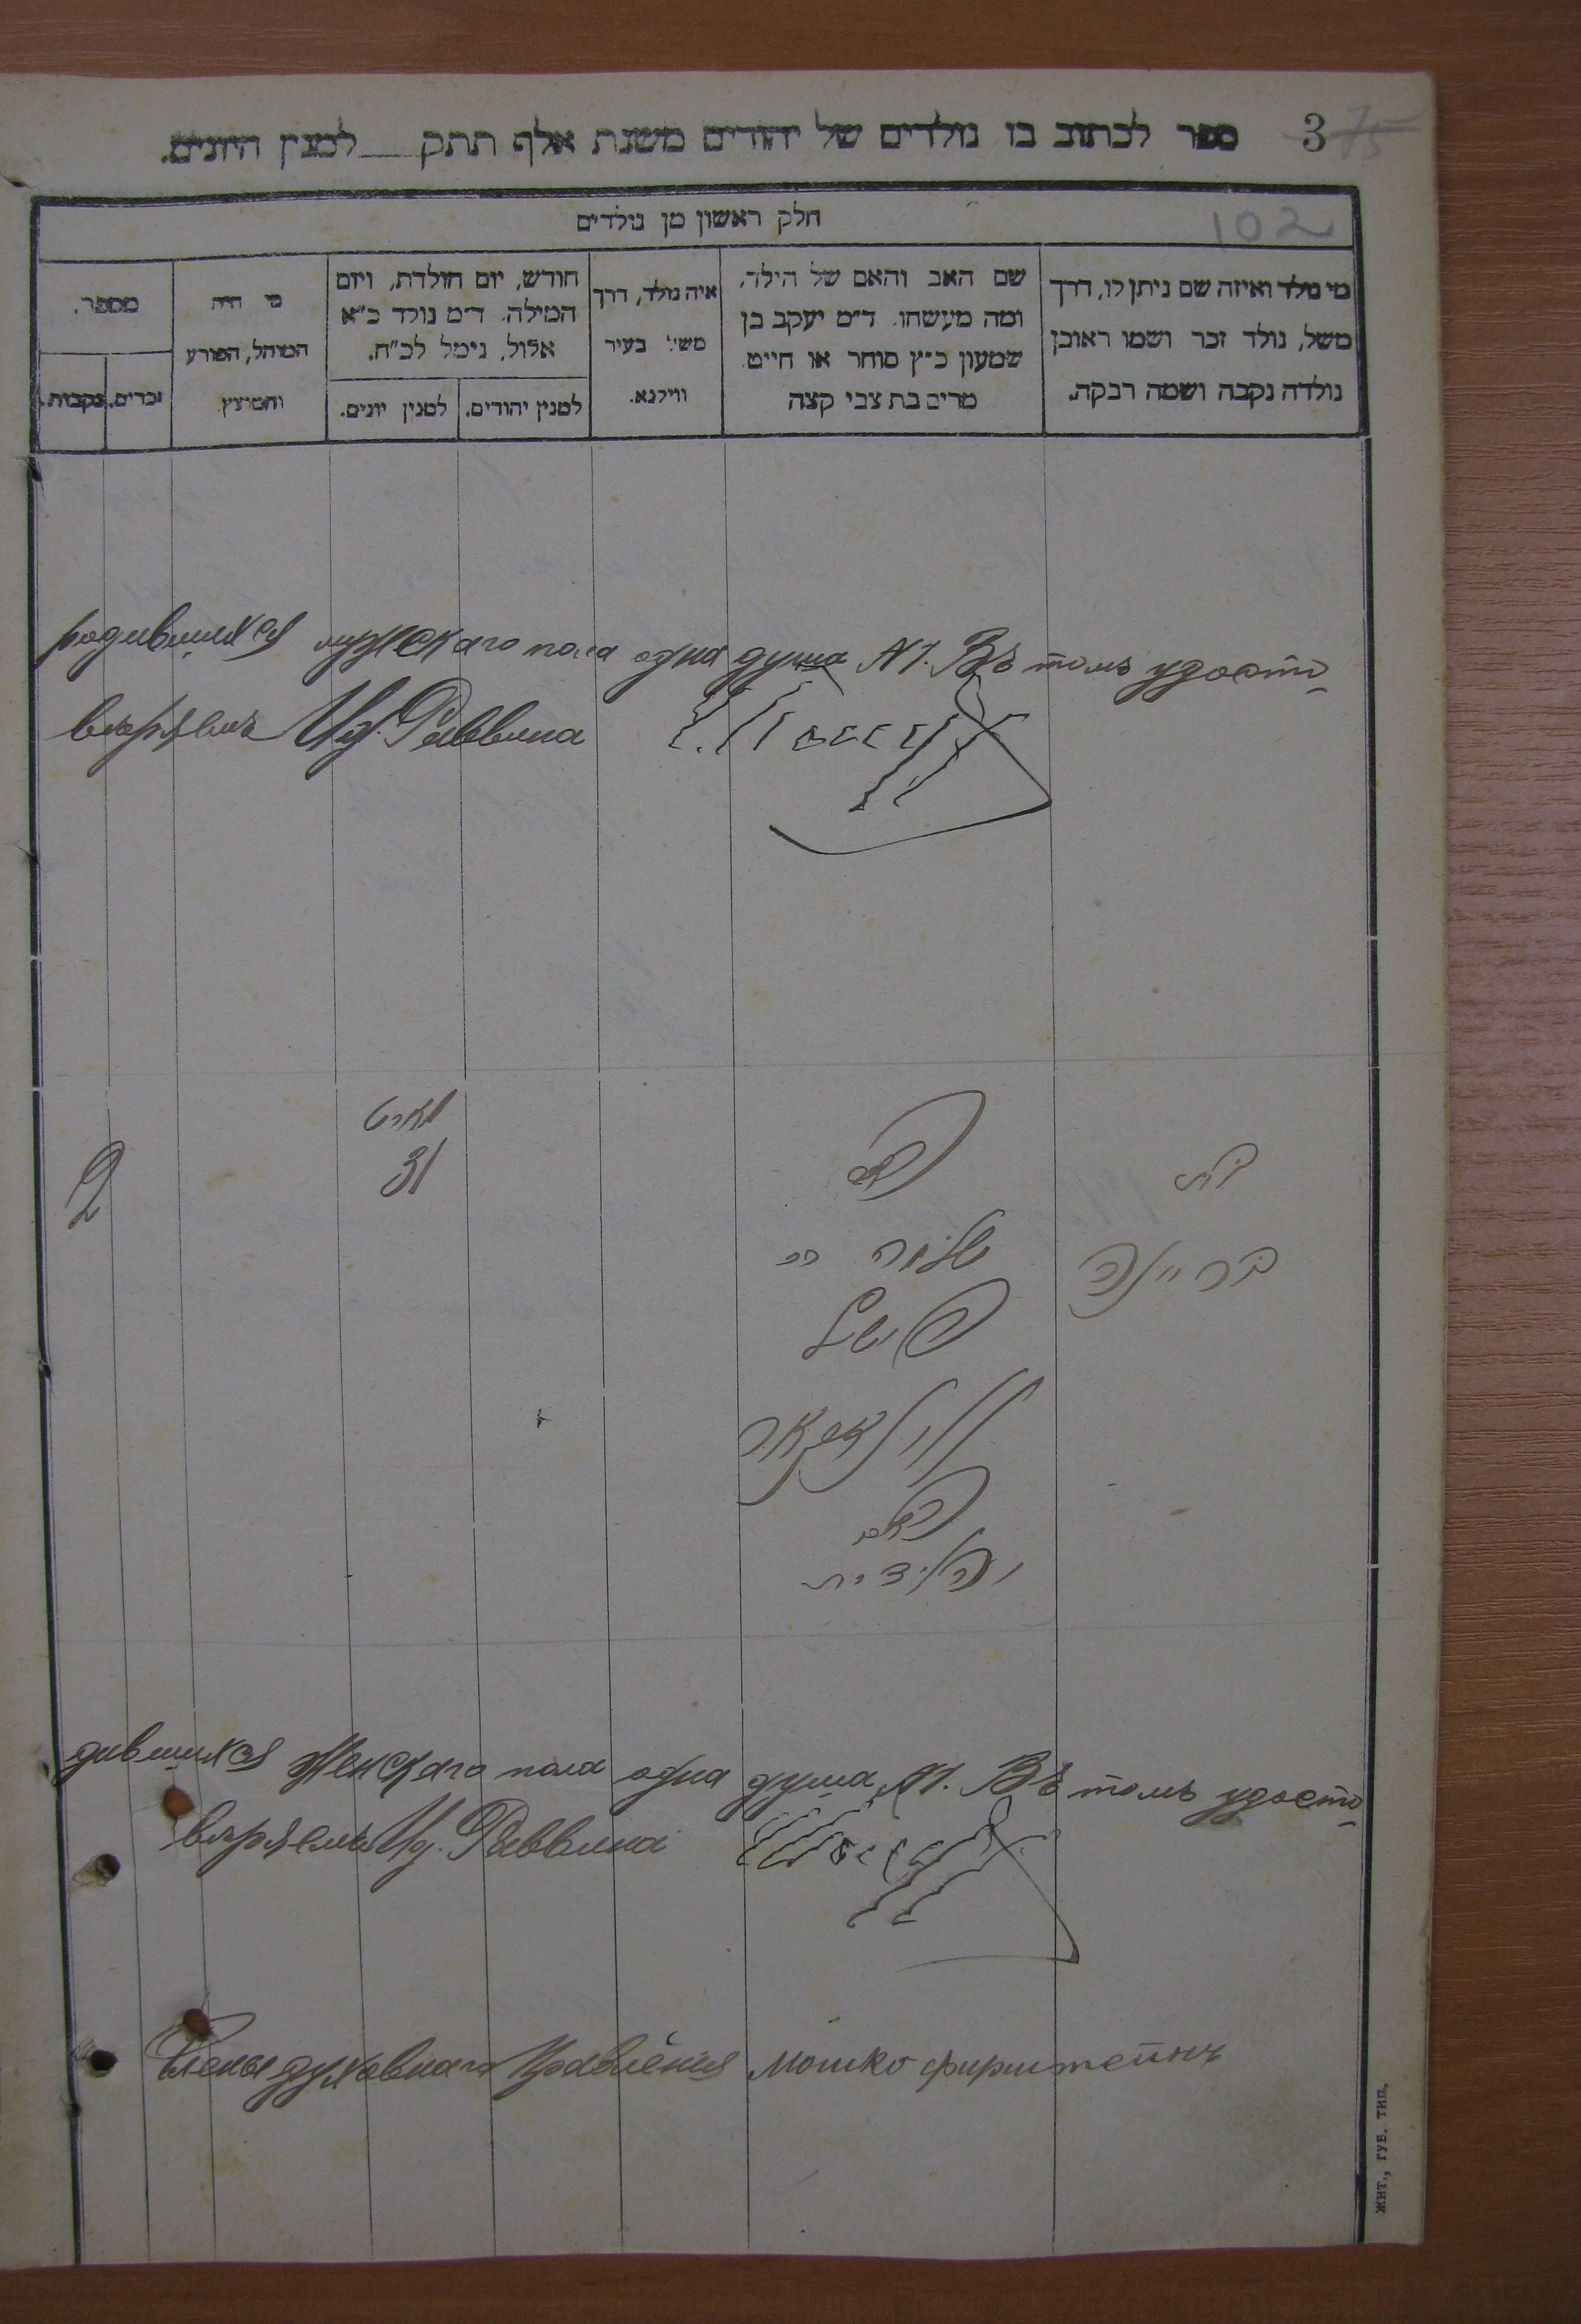 3 75
ספר לכתוב בו נולדים של יהודים משנת אלף תתק___ למנין היונים.
102
חלק ראשון מן נולדים
מי נולד ואיזה שם ניתן לו, דרך
משל, נולד זכר ושמו ראובן
נולדה נקבה ושמה רבקה.
שם האב והאם של הילד,
ומה מעשהו. ד״מ יעקב בן
שמעון כ״ץ סוחר או חייט
מרים בת צבי קצה
איה נולד, דרך
משל בעיר
ווילנא.
חודש, יום הולדת, ויום
המילה. ד״מ נולד כ״א
אלול, נימל לכ״ח.
למנין יהודים.
למנין יונים.
מי היה
המוהל, הפורע
והמוצץ
מספר.
זכרים.
נקבות.
родившихся мужскаго пола одна душа №1. Въ томъ удосто-
веряемъ Ид. Раввина
מארט
31
2
האב
שלמה
האם
בת
дившихся женскаго пола одна душа №1. Въ томъ удосто-
веряемъ Ид. Раввина
Члены духовнаго правления Мошко фирштейнъ
Жит., Губ. Тип.